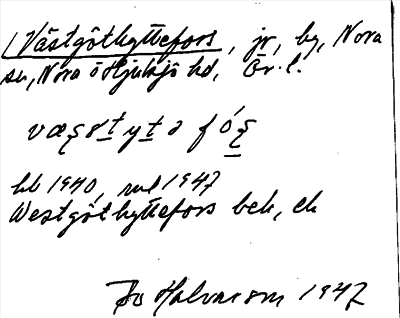 Västgöthyttefors, jr, by, Nora
sn, Nora o Hjulsjö hd, Ör. l.
hb 1940, rul 1947
Westgöthyttefors bek, ek
Halvarson 1947